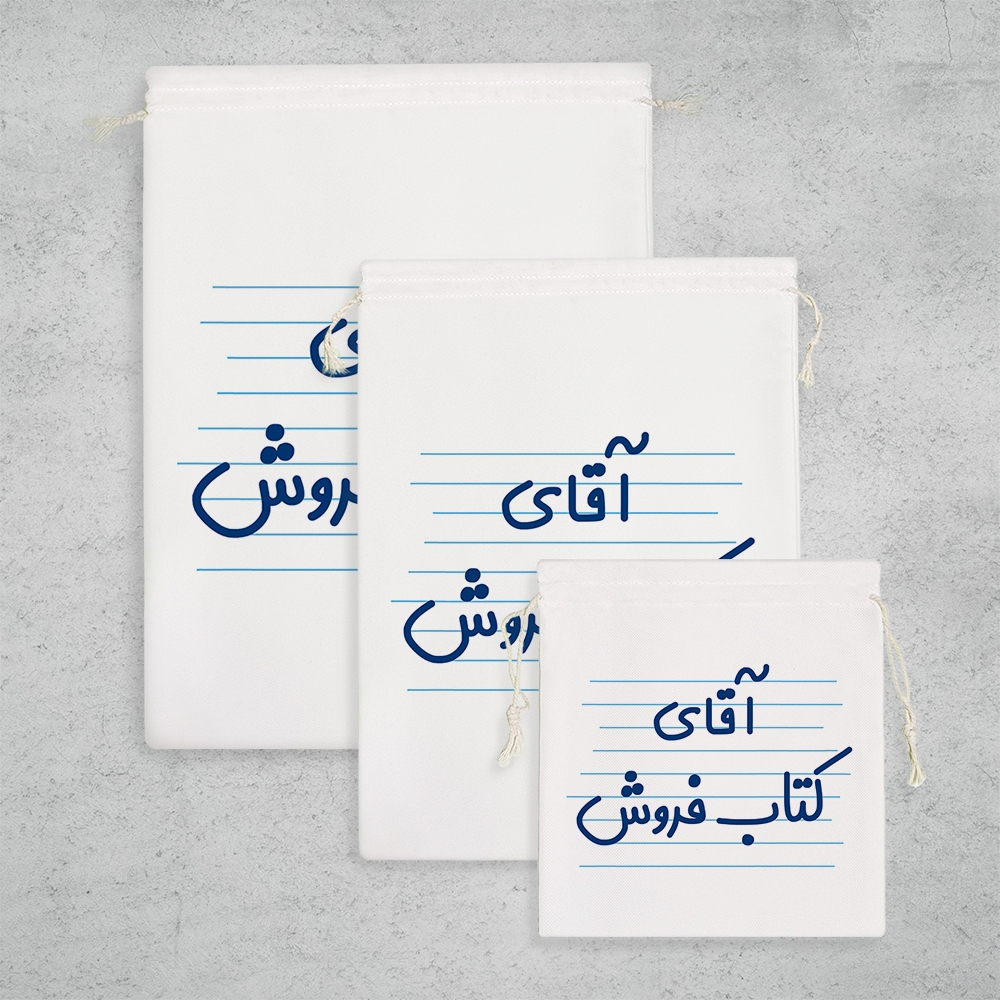 ی
روش
آقای
روش
آقای
کتاب فروش